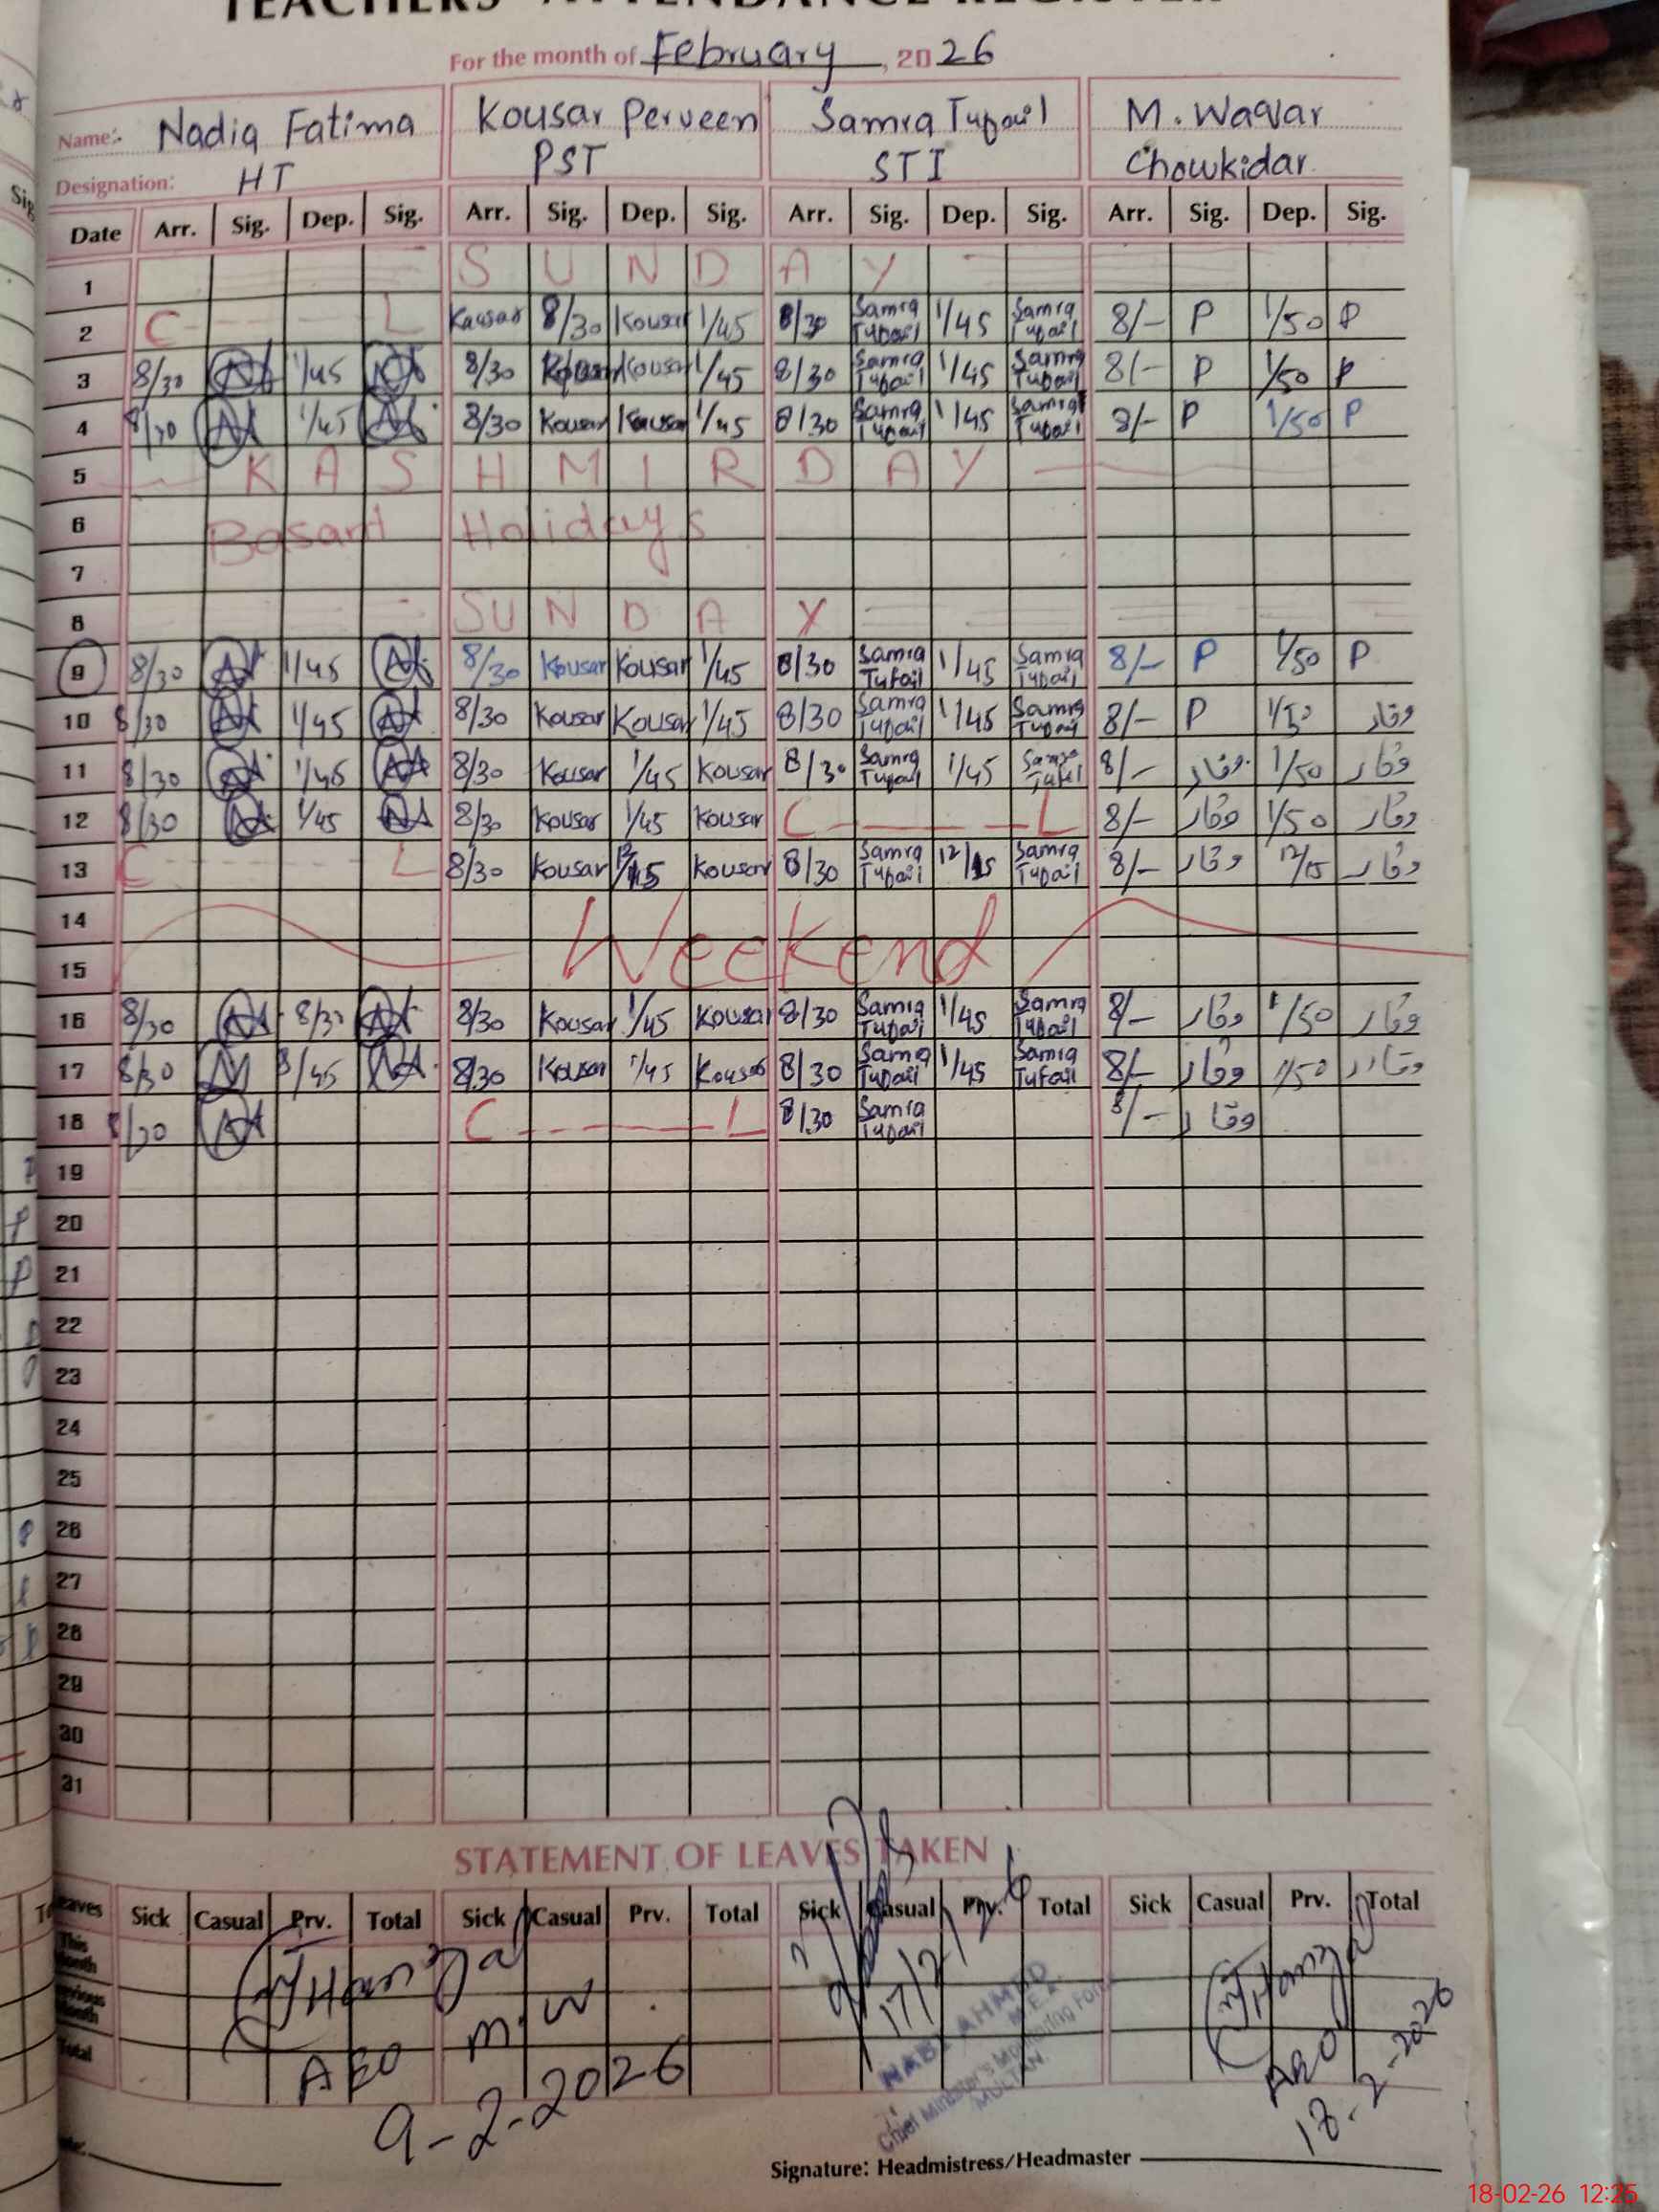 TEACHERS' ATTENDANCE REGISTER
For the month of February, 2026
Name:- Nadia Fatima Kousar Perveen Samra Tufail M. Waqar
Designation: HT PST STI Chowkidar
Date Arr. Sig. Dep. Sig. Arr. Sig. Dep. Sig. Arr. Sig. Dep. Sig. Arr. Sig. Dep. Sig.
1 SUNDAY
2 C L Kousar 8/30 Kousar 1/45 8/30 Samra Tufail 1/45 Samra Tufail 8/- P 1/50 P
3 8/30 1/45 8/30 Kousar Kousar 1/45 8/30 Samra Tufail 1/45 Samra Tufail 8/- P 1/50 P
4 8/30 1/45 8/30 Kousar Kousar 1/45 8/30 Samra Tufail 1/45 Samra Tufail 8/- P 1/50 P
5 KASHMIR DAY
6 Basant Holidays
7
8 SUNDAY
9 8/30 1/45 8/30 Kousar Kousar 1/45 8/30 Samra Tufail 1/45 Samra Tufail 8/- P 1/50 P
10 8/30 1/45 8/30 Kousar Kousar 1/45 8/30 Samra Tufail 1/45 Samra Tufail 8/- P وقار
11 8/30 1/45 8/30 Kousar 1/45 Kousar 8/30 Samra Tufail 1/45 Samra Tufail 8/- وقار 1/50 وقار
12 8/30 1/45 8/30 Kousar 1/45 Kousar C L 8/- وقار 1/50 وقار
13 C L 8/30 Kousar Kousar 8/30 Samra Tufail 12/15 Samra Tufail 8/- وقار 12/15 وقار
14 Weekend
15
16 8/30 8/30 8/30 Kousar 1/45 Kousar 8/30 Samra Tufail 1/45 Samra Tufail 8/- وقار 1/50 وقار
17 8/30 /45 8/30 Kousar 1/45 Kousar 8/30 Samra Tufail 1/45 Samra Tufail 8/- وقار 1/50 وقار
18 8/30 C L 8/30 Samra Tufail 8/- وقار
19
20
21
22
23
24
25
26
27
28
29
30
31
STATEMENT OF LEAVES TAKEN
Leaves Sick Casual Prv. Total Sick Casual Prv. Total Sick Casual Prv. Total Sick Casual Prv. Total
This Month
Previous Month
Total
AEO M.W
9-2-2026
17/2/26
NABI AHMED
M.E.A
Chief Minister's Monitoring Force
MULTAN
AEO
18-2-2026
Signature: Headmistress/Headmaster
18-02-26 12:25